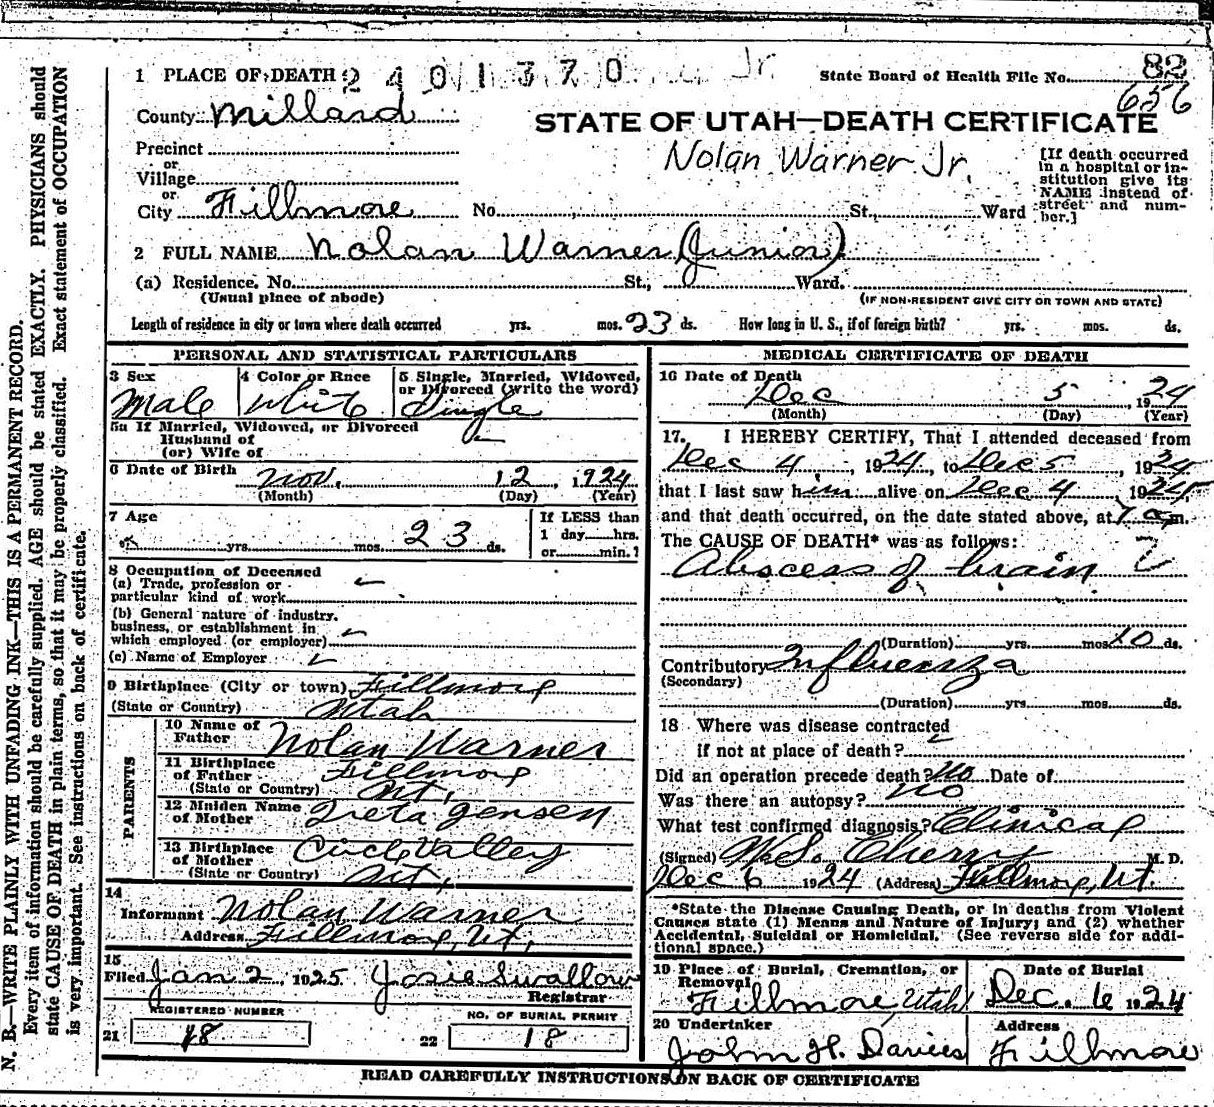 1 PLACE OF DEATH 2401370 Jr. State Board of Health File No. 82
656
County Millard
STATE OF UTAH—DEATH CERTIFICATE
Precinct
or
Village
or
City Fillmore No. St. Ward
Nolan Warner Jr.
[If death occurred in a hospital or in-
stitution give its
NAME instead of
street and num-
ber.]
2 FULL NAME Nolan Warner (Junior)
(a) Residence. No. St., Ward.
(Usual place of abode) (IF NON-RESIDENT GIVE CITY OR TOWN AND STATE)
Length of residence in city or town where death occurred yrs. mos. 23 ds. How long in U. S., if of foreign birth? yrs. mos. ds.
PERSONAL AND STATISTICAL PARTICULARS
3 Sex
Male
4 Color or Race
White
5 Single, Married, Widowed,
or Divorced (write the word)
Single
5a If Married, Widowed, or Divorced
Husband of
(or) Wife of
6 Date of Birth Nov. 12 1924
(Month) (Day) (Year)
7 Age
yrs. mos. 23 ds.
If LESS than
1 day hrs.
or min.?
8 Occupation of Deceased
(a) Trade, profession or
particular kind of work
(b) General nature of industry,
business, or establishment in
which employed (or employer)
(c) Name of Employer
9 Birthplace (City or town) Fillmore
(State or Country) Utah
PARENTS
10 Name of
Father Nolan Warner
11 Birthplace
of Father Fillmore
(State or Country) Ut.
12 Maiden Name
of Mother Greta Jensen
13 Birthplace
of Mother Circle Valley
(State or Country) Ut.
14
Informant Nolan Warner
Address Fillmore, Ut.
15
Filed Jan 2, 1925 Josie Swallow
Registrar
REGISTERED NUMBER NO. OF BURIAL PERMIT
21 18 22 18
MEDICAL CERTIFICATE OF DEATH
16 Date of Death
Dec 5 1924
(Month) (Day) (Year)
17. I HEREBY CERTIFY, That I attended deceased from
Dec 4, 1924, to Dec 5, 1924
that I last saw him alive on Dec 4, 1924
and that death occurred, on the date stated above, at 7 am.
The CAUSE OF DEATH* was as follows:
Abscess of brain
(Duration) yrs. mos. 10 ds.
Contributory Influenza
(Secondary)
(Duration) yrs. mos. ds.
18 Where was disease contracted
if not at place of death?
Did an operation precede death? No Date of
Was there an autopsy? No
What test confirmed diagnosis? Clinical
(Signed) M. D.
Dec 6 1924 (Address) Fillmore, Ut.
*State the Disease Causing Death, or in deaths from Violent
Causes state (1) Means and Nature of Injury; and (2) whether
Accidental, Suicidal or Homicidal. (See reverse side for addi-
tional space.)
19 Place of Burial, Cremation, or
Removal
Fillmore, Utah
Date of Burial
Dec. 6 1924
20 Undertaker
John H. Davies
Address
Fillmore
READ CAREFULLY INSTRUCTIONS ON BACK OF CERTIFICATE
N. B.—WRITE PLAINLY WITH UNFADING INK—THIS IS A PERMANENT RECORD.
Every item of information should be carefully supplied. AGE should be stated EXACTLY. PHYSICIANS should
state CAUSE OF DEATH in plain terms, so that it may be properly classified. Exact statement of OCCUPATION
is very important. See instructions on back of certificate.